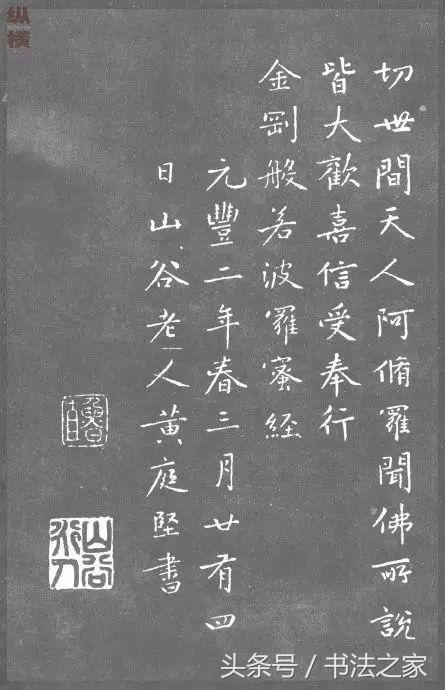 切世間天人阿脩羅聞佛所說
皆大歡喜信受奉行
金剛般若波羅蜜經
元豐二年春三月廿有四
日山谷老人黃庭堅書
魯直
山谷
纵横
头条号／书法之家